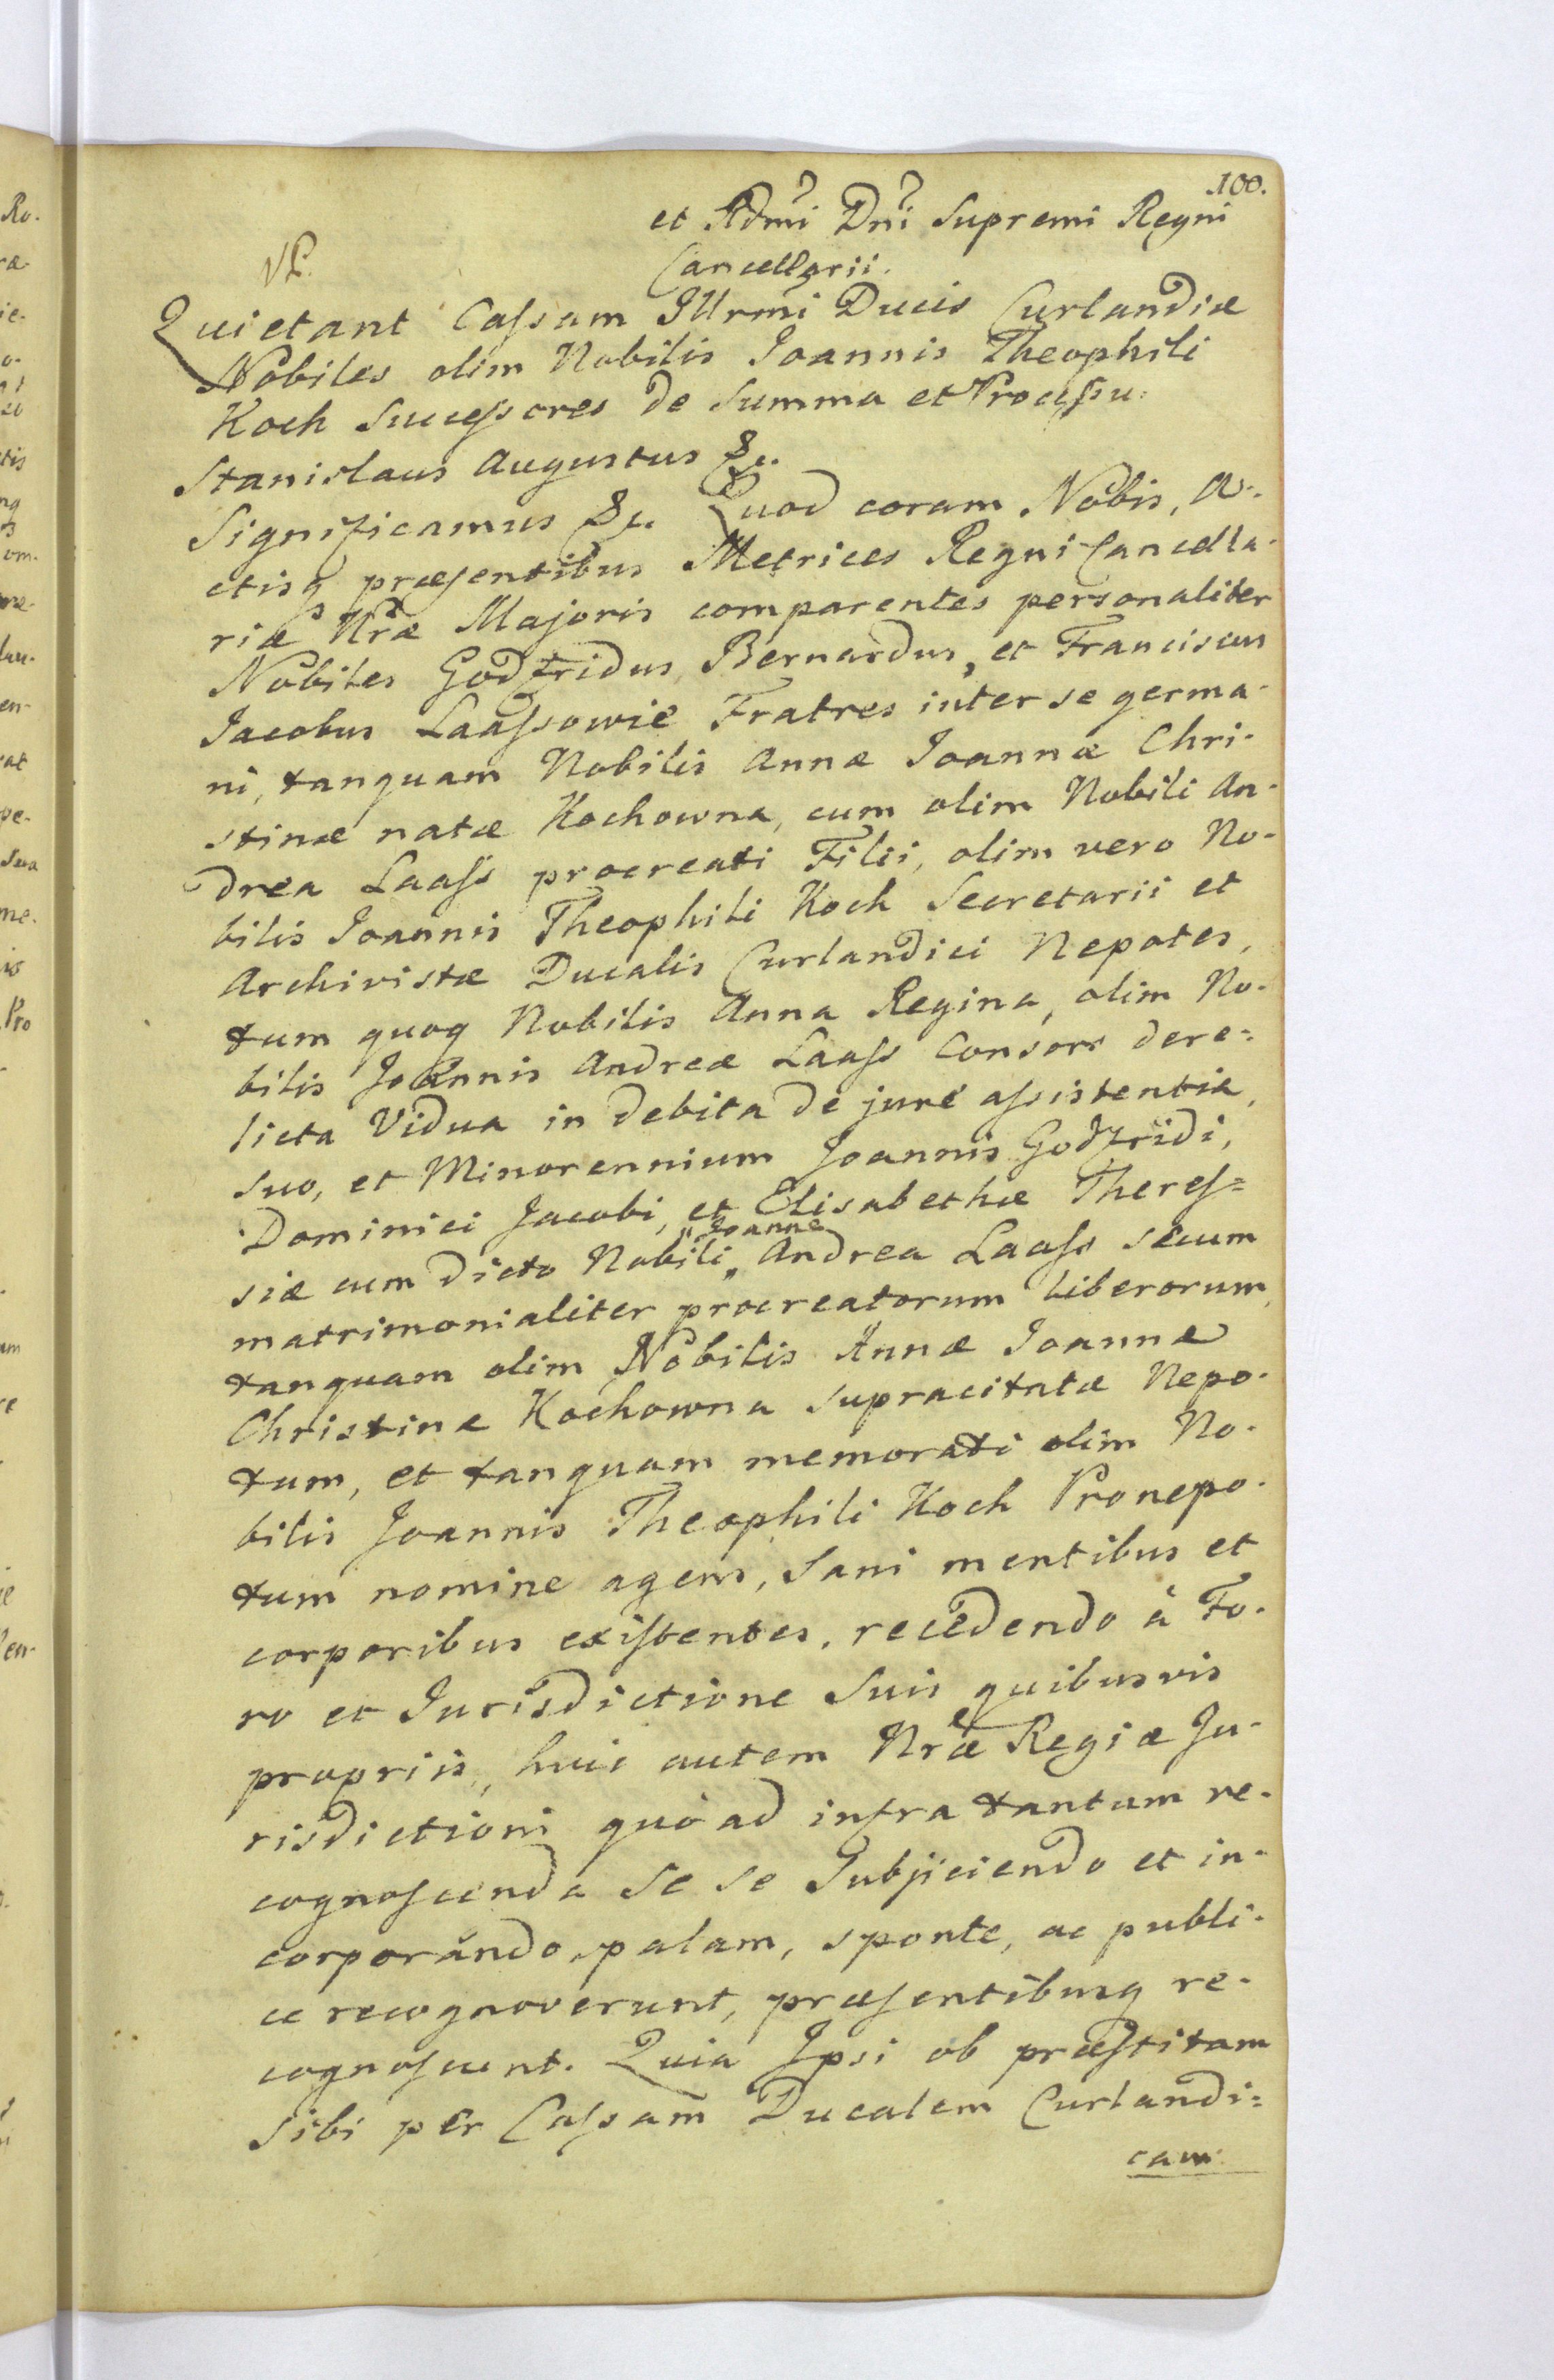 100.
et Rdmi Dni Supremi Regni
Cancellarii.
Quietant Cassam Illrmi Ducis Curlandiæ
Nobiles olim Nobilis Joannis Theophili
Koch Successores de Summa et Processu.
Stanislaus Augustus &c.
Significamus &c. Quod coram Nobis, A-
ctisq præsentibus Metrices Regni Cancella-
riæ Nræ Majoris comparentes personaliter
Nobiles Godfridus Bernardus, et Franciscus
Jacobus Laassowie Fratres inter se germa-
ni, tanquam Nobilis Annæ Joannæ Chri-
stinæ natæ Kochowna, cum olim Nobili An-
drea Laass procreati Filii, olim vero No-
bilis Joannis Theophili Koch Secretarii et
Archivistæ Ducalis Curlandici Nepotes,
tum quoq Nobilis Anna Regina, olim No-
bilis Joannis Andreæ Laass Consors dere=
licta Vidua in debita de jure assistentia,
suo, et Minorennium Joannis Godfridi,
Dominici Jacobi, et Elisabethæ Theres=
siæ cum dicto Nobili „Joanne„ Andrea Laass secum
matrimonialiter procreatorum liberorum,
tanquam olim Nobilis Annæ Joannæ
Christinæ Kochowna supracitatæ Nepo-
tum, et tanquam memorati olim No-
bilis Joannis Theophili Koch Pronepo-
tum nomine agens, sani mentibus et
corporibus existentes, recedendo à Fo-
ro et Jurisdictione suis quibusvis
propriis, huic autem Nræ Regiæ Ju-
risdictioni quò ad infra tantum re-
cognoscenda se se subjiciendo et in-
corporando, palam, sponte, ac publi-
ce recognoverunt, præsentibusq re-
cognoscunt. Quia Ipsi ob præstitam
sibi per Cassam Ducalem Curlandi=
cam